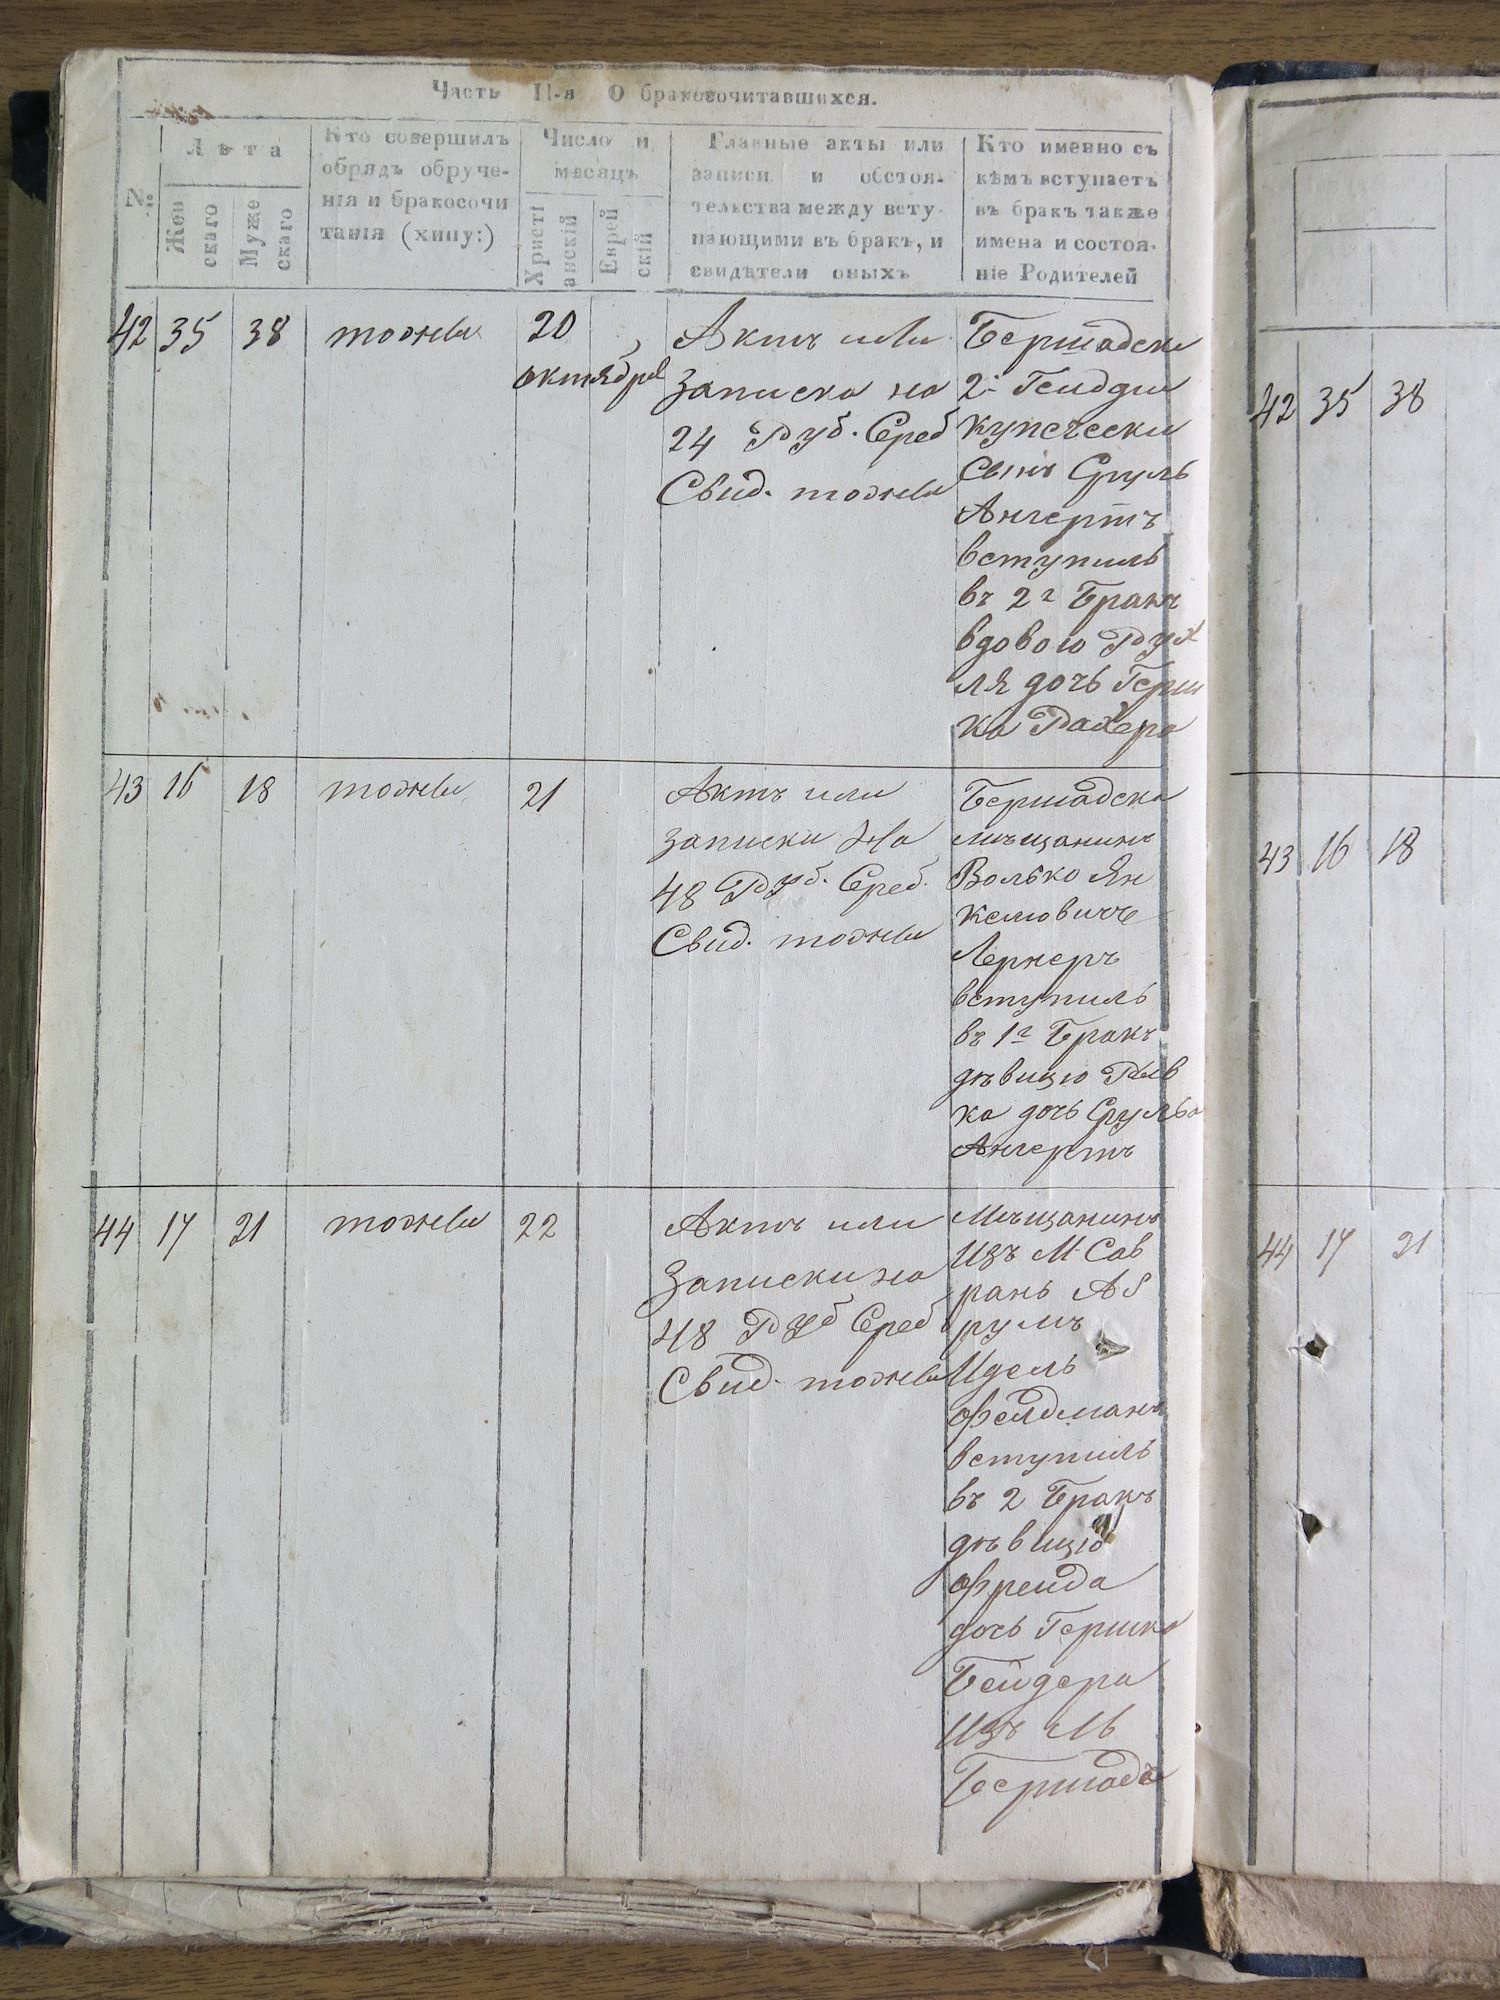 Часть II-я О бракосочитавшихся.
№
Лѣта
Женскаго
Мужескаго
Кто совершилъ
обрядъ обруче-
нія и бракосочи
танія (хипу:)
Число и
мѣсяцъ
Христі
анскій
Еврей
скій
Главные акты или
записи и обстоя-
тельства между всту
пающими въ бракъ, и
свидѣтели оныхъ
Кто именно съ
кѣмъ вступаетъ
въ бракъ также
имена и состоя-
ніе Родителей
42 35 38 тожны 20
октября
Актъ или
Записка на
24 Руб. Сереб
Свид. тожны
Бершадски
2й Гилдии
Купечески
Сынъ Сруль
Ангертъ
вступилъ
въ 2г Бракъ
вдовою Рух
ля дочь Герш
ка Рахера
43 16 18 тожны 21
Актъ или
записки на
48 Руб. Сереб.
Свид. тожны
Бершадски
мѣщанинъ
Волько Ян
келювичъ
Лернеръ
вступилъ
въ 1г Бракъ
дѣвицю Рыв
ка дочь Сруля
Ангертъ
44 17 21 тожны 22
Актъ или
Записки на
48 Руб Сереб
Свид. тожны
Мѣщанинъ
Изъ М. Сав
рань
Идель
Фелдманъ
вступилъ
въ 2 Бракъ
дѣвицю
Фрейда
дочь Гершка
Бейдера
Изъ М
Бершадь
42 35 38
43 16 18
44 17 21